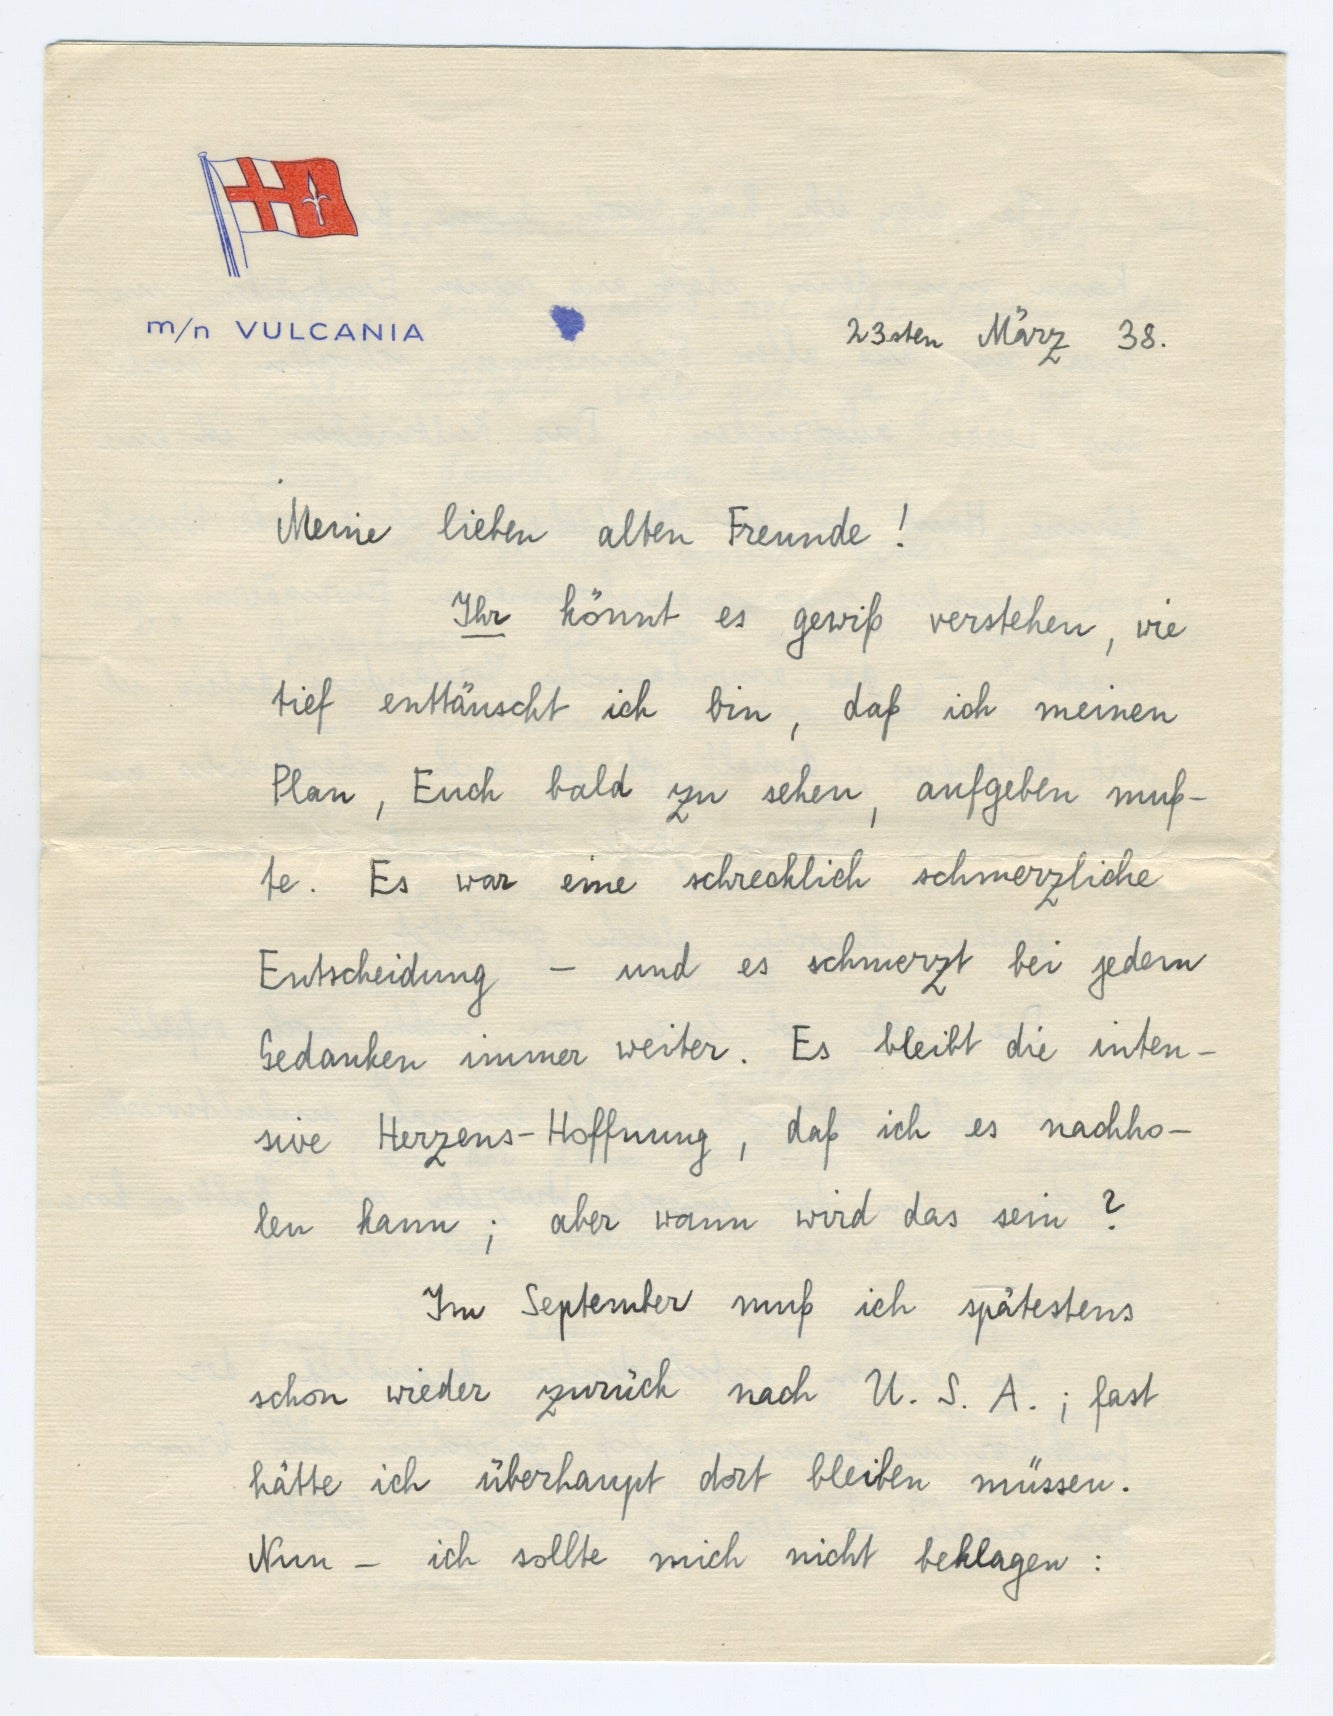 m/n VULCANIA
23sten März 38.
Meine lieben alten Freunde!
Ihr könnt es gewiß verstehen, wie
tief enttäuscht ich bin, daß ich meinen
Plan, Euch bald zu sehen, aufgeben muß-
te. Es war eine schrecklich schmerzliche
Entscheidung – und es schmerzt bei jedem
Gedanken immer weiter. Es bleibt die inten-
sive Herzens-Hoffnung, daß ich es nachho-
len kann; aber wann wird das sein?
Im September muß ich spätestens
schon wieder zurück nach U. S. A.; fast
hätte ich überhaupt dort bleiben müssen.
Nun – ich sollte mich nicht beklagen: